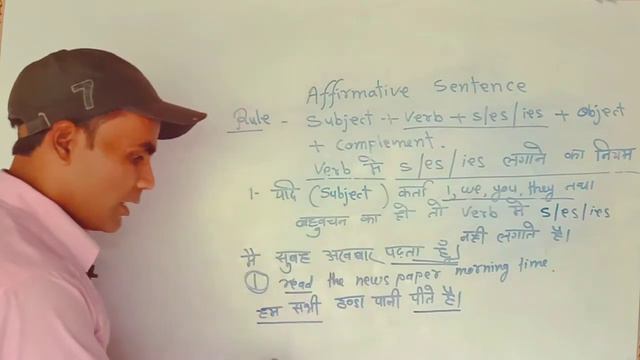 7
Affirmative Sentence
Rule - Subject + Verb + s/es/ies + Object
+ complement.
Verb में s/es/ies लगाने का नियम
1- यदि (Subject) कर्ता I, we, you, they तथा
बहुवचन का हो तो verb में s/es/ies
नहीं लगाते है।
मैं सुबह अखबार पढ़ता हूँ।
I read the newspaper morning time.
हम सभी ठण्डा पानी पीते है।